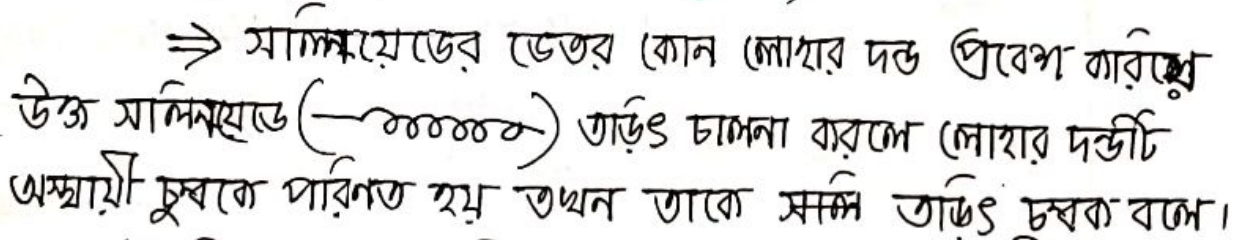 ⇒ সলিনয়েডের ভেতর কোন লোহার দন্ড প্রবেশ করিয়ে
উক্ত সলিনয়েডে () তড়িৎ চালনা করলে লোহার দন্ডটি
অস্থায়ী চুম্বকে পরিনত হয় তখন তাকে তড়িৎ চম্বক বলে।